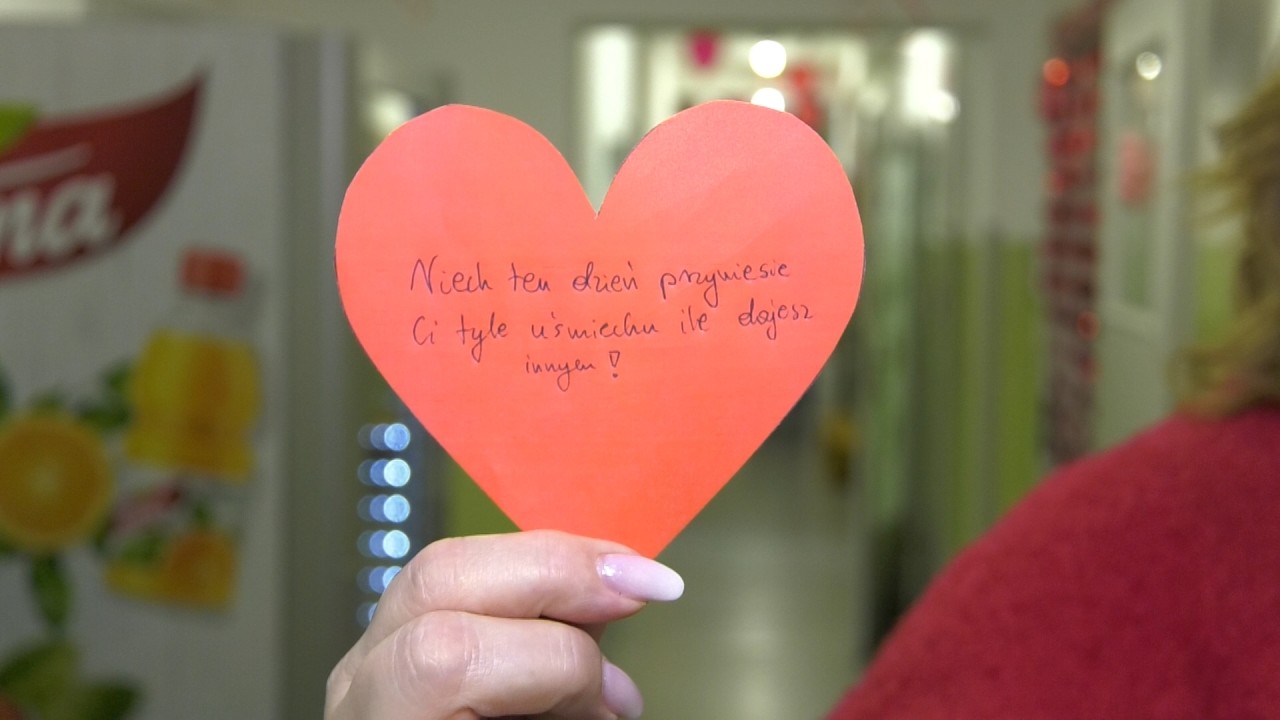 ma
Niech ten dzień przyniesie
Ci tyle uśmiechu ile dajesz
innym!